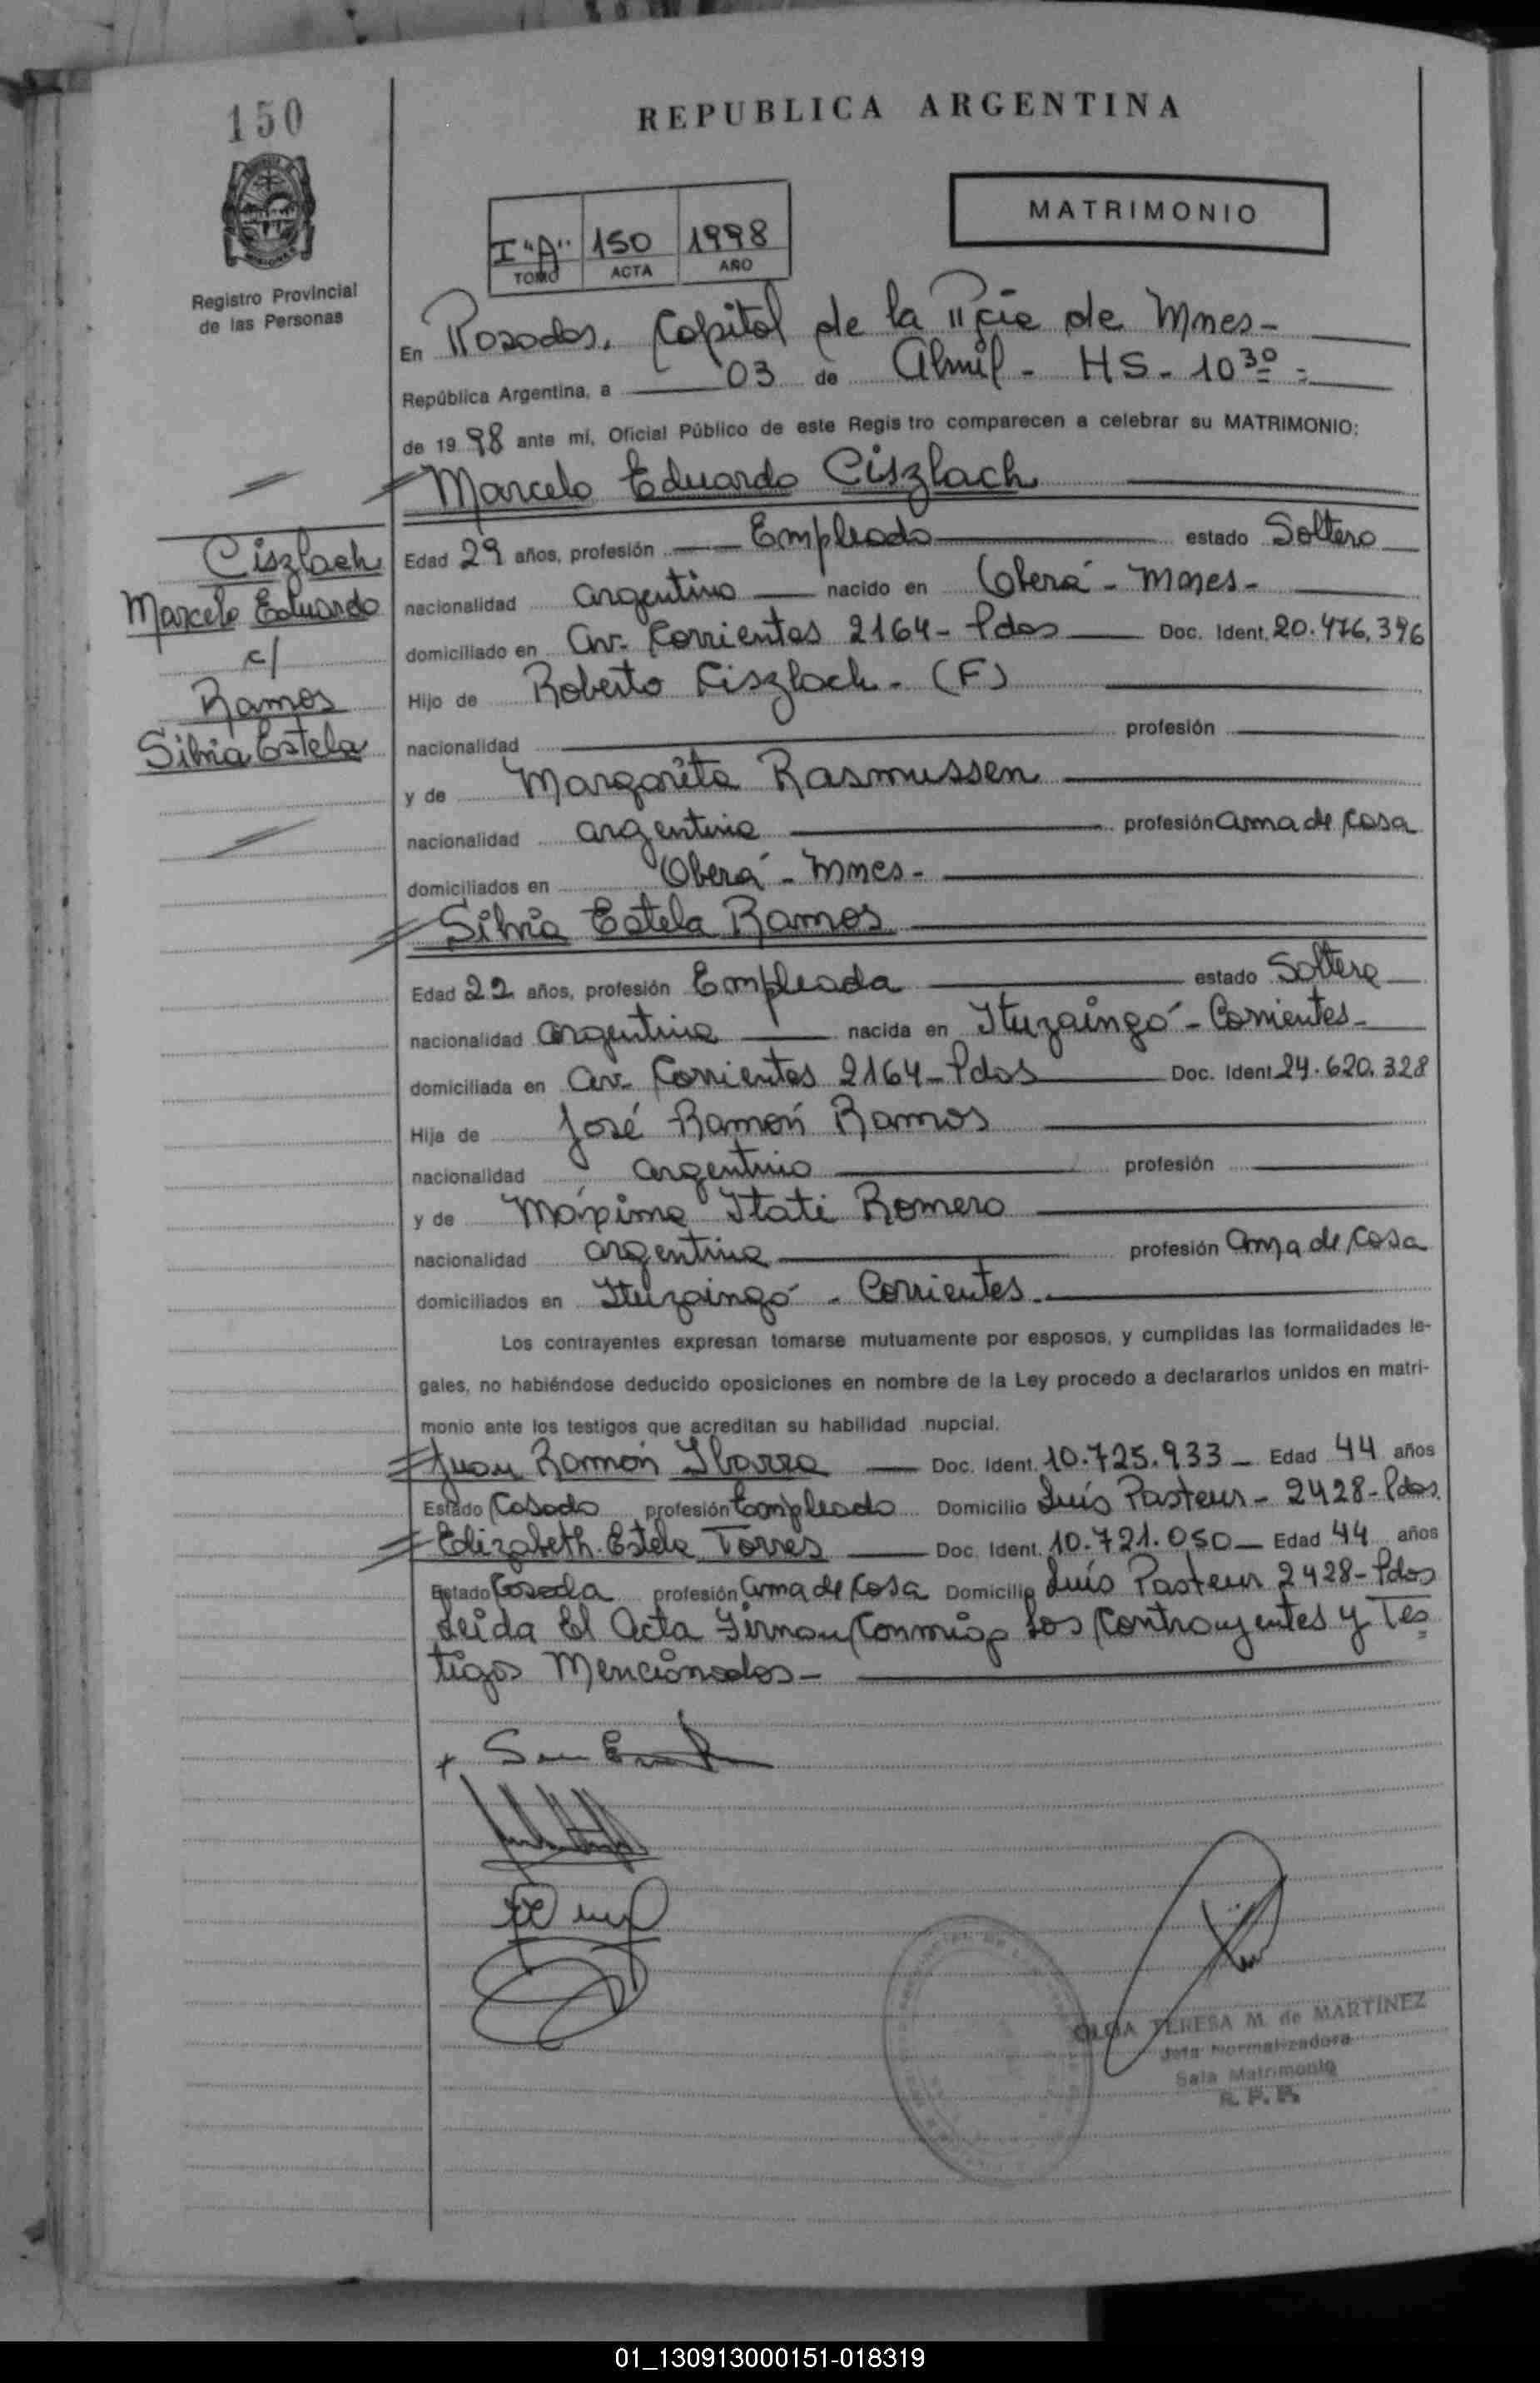 150
REPUBLICA ARGENTINA
MATRIMONIO
I "A" 150 1998
TOMO ACTA AÑO
Registro Provincial
de las Personas
En Posadas, Capital de la Pcia de Mnes-
República Argentina, a 03 de Abril - HS - 10 30
de 1998 ante mí, Oficial Público de este Regis tro comparecen a celebrar su MATRIMONIO:
Marcelo Eduardo Ciszlach
Edad 29 años, profesión Empleado estado Soltero
nacionalidad argentino nacido en Oberá - Mnes-
domiciliado en Av. Corrientes 2164 - Pdas Doc. Ident. 20.476.396
Hijo de Roberto Ciszlach - (F)
nacionalidad profesión
y de Margarita Rasmussen
nacionalidad argentina profesión ama de casa
domiciliados en Oberá - Mnes-
Ciszlach
Marcelo Eduardo
c/
Ramos
Silvia Estela
Silvia Estela Ramos
Edad 22 años, profesión Empleada estado Soltera
nacionalidad argentina nacida en Ituzaingó - Corrientes-
domiciliada en Av. Corrientes 2164 - Pdas Doc. Ident 24.620.328
Hija de José Ramón Ramos
nacionalidad argentino profesión
y de Máxima Itati Romero
nacionalidad argentina profesión ama de casa
domiciliados en Ituzaingó - Corrientes-
Los contrayentes expresan tomarse mutuamente por esposos, y cumplidas las formalidades le-
gales, no habiéndose deducido oposiciones en nombre de la Ley procedo a declararlos unidos en matri-
monio ante los testigos que acreditan su habilidad nupcial.
Juan Ramón Ibarra Doc. Ident. 10.725.933 - Edad 44 años
Estado Casado profesión Empleado Domicilio Luis Pasteur - 2428 - Pdas
Elizabeth Estela Torres Doc. Ident. 10.721.050 - Edad 44 años
Estado Casada profesión ama de casa Domicilio Luis Pasteur 2428 - Pdas
Leida El Acta Firman Conmigo Los Contrayentes y Tes
tigos Mencionados-
OLGA TERESA M. de MARTINEZ
Jefa Normalizadora
Sala Matrimonio
R. P. P.
01_130913000151-018319